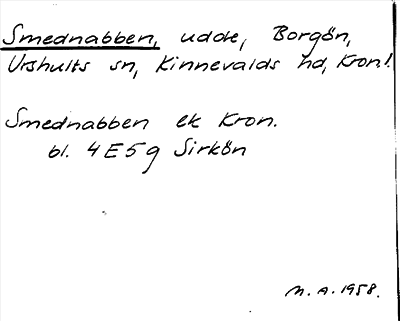 Smednabben, udde, Borgön,
Urshults sn, Kinnevalds hd, Kron.l.
Smednabben ek Kron.
bl. 4E5g Sirkön
M.A. 1958.